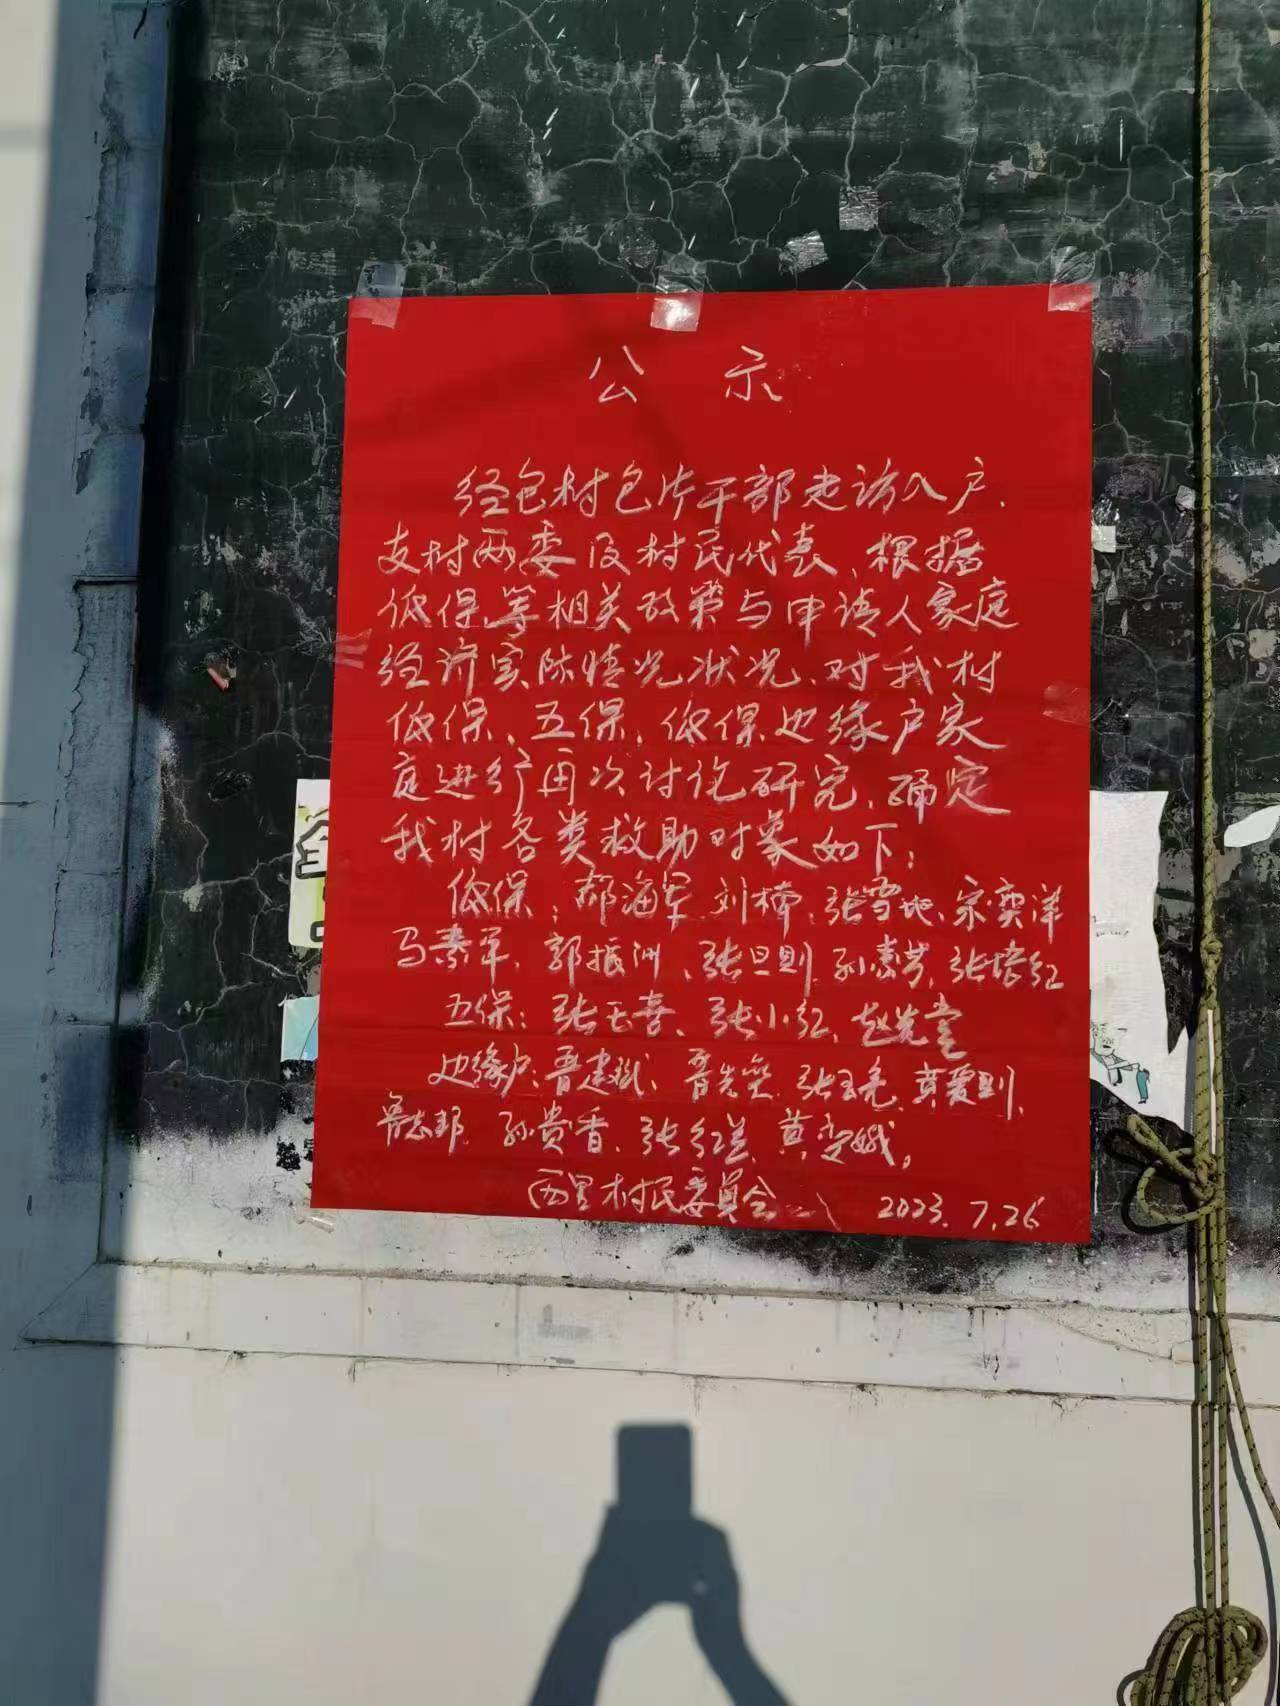 公 示
经包村包片干部走访入户.
支村两委及村民代表,根据
低保等相关政策与申请人家庭
经济实际情况状况、对我村
低保、五保、低保边缘户家
庭进行再次讨论研究,确定
我村各类救助对象如下:
低保:郝海军 刘楠、张雪地、宋奕洋
马素军、郭振洲、张旦则 孙素芳、张培红
五保:张玉喜、张小红、赵先堂
边缘户:晋建斌、晋先 张玉毛 黄爱则、
鲁志邦、孙贵香、张红 黄 娥。
西里村民委员会 2023.7.26